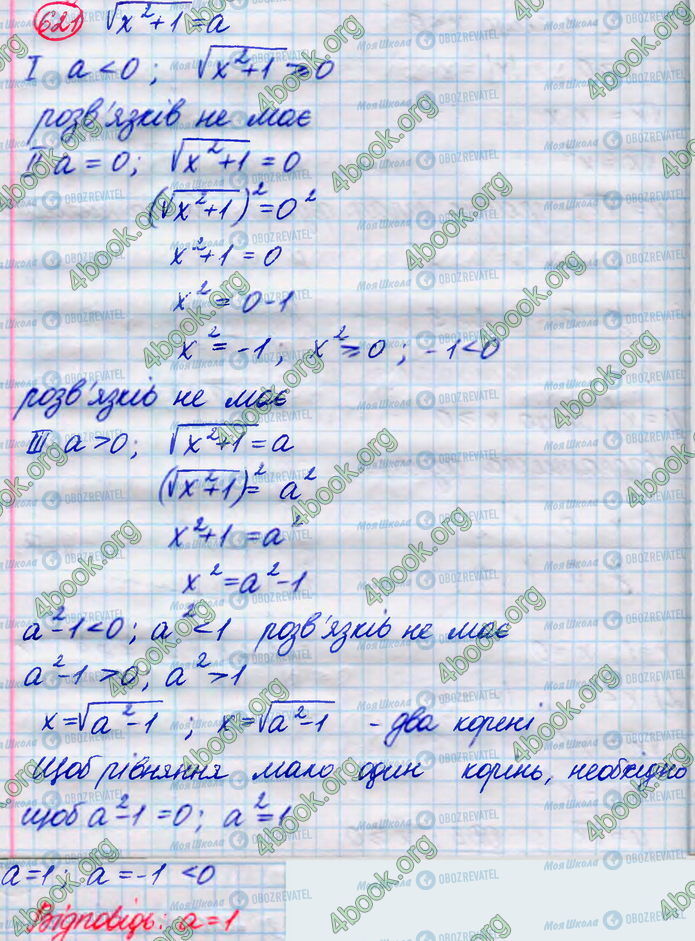 621) √x²+1 = a
I a < 0 ; √x²+1 ⩾ 0
розв'язків не має
II a = 0; √x²+1 = 0
(√x²+1)² = 0²
x²+1 = 0
x² = 0-1
x² = -1 ; x² ⩾ 0 ; -1 < 0
розв'язків не має
III a > 0; √x²+1 = a
(√x²+1)² = a²
x²+1 = a²
x² = a²-1
a²-1 < 0 ; a² < 1 розв'язків не має
a²-1 > 0; a² > 1
x = √a²-1 ; x = √a²-1 - два корені
Щоб рівняння мало один корінь, необхідно
щоб a²-1 = 0; a² = 1
a = 1 ; a = -1 < 0
Відповідь: a = 1
4book.org
МояШкола OBOZREVATEL